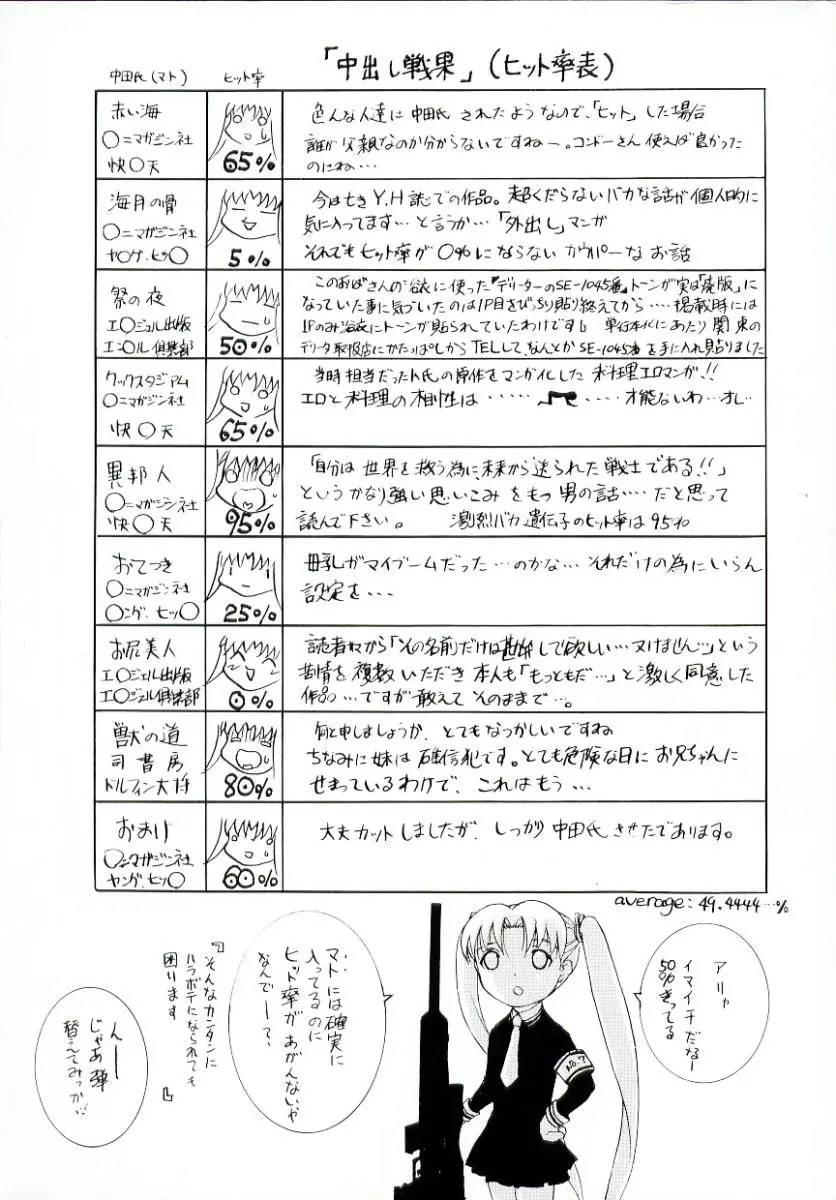 「中出し戦果」(ヒット率表)
中田氏(マト)
ヒット率
赤い海
〇ニマガジン社
快〇天
65%
色んな人達に中田氏されたようなので、「ヒット」した場合
誰が父親なのか分からないですねー。コンドーさん使えば良かった
のにね…
海月の骨
〇ニマガジン社
ヤ〇グ.ヒッ〇
5%
今は亡きY.H誌での作品。超くだらないバカな話が個人的に
気に入ってます…と言うか…「外出し」マンガ
それでもヒット率が0%にならないカウパーなお話
祭の夜
エ〇ジェル出版
エン〇ル倶楽部
50%
このおばさんの浴衣に使った『デリーターのSE-1045番』トーンが実は「廃版」に
なっていた事に気づいたのは1P目をびっちり貼り終えてから‥‥掲載時には
1Pのみ浴衣にトーンが貼られていたわけです。単行本化にあたり関東の
デリータ取扱店にかたっぱしからTELして、なんとかSE-1045番を手に入れ貼りました
クックスタジアム
〇ニマガジン社
快〇天
65%
当時担当だったト氏の原作をマンガ化した料理エロマンガ!!
エロと料理の相性は‥‥‥ ‥‥才能ないわ…オレ…
異邦人
〇ニマガジン社
快〇天
95%
「自分は世界を救う為に、未来から送られた戦士である!!」
というかなり強い思いこみをもつ男の話‥‥だと思って
読んで下さい。 激烈バカ遺伝子のヒット率は95%
おてつき
〇ニマガジン社
〇ング.ヒッ〇
25%
母乳がマイブームだった…のかな…それだけの為にいらん
設定を…
お尻美人
エ〇ジェル出版
エ〇ジェル倶楽部
0%
読者様から「その名前だけは勘弁して欲しい…ヌけません…」という
苦情を複数いただき本人も「もっともだ…」と激しく同意した
作品…ですが敢えてそのままで…。
獣の道
司書房
ドルフィン大将
80%
何と申しましょうか、とてもなつかしいですね
ちなみに妹は確信犯です。とても危険な日にお兄ちゃんに
せまっているわけで、これはもう…
おまけ
〇ニマガジン社
ヤング.ヒッ〇
60%
大丈カットしましたが、しっかり中田氏させたであります。
average:49.4444…%
アリャ
イマイチだなー
50%きってる
マトには確実に
入ってるのに
ヒット率が
あがんないや
なんでーで、
『そんなカンタンに
ハラボテになられても
困ります』
んー
じゃあ弾
替えてみっか…